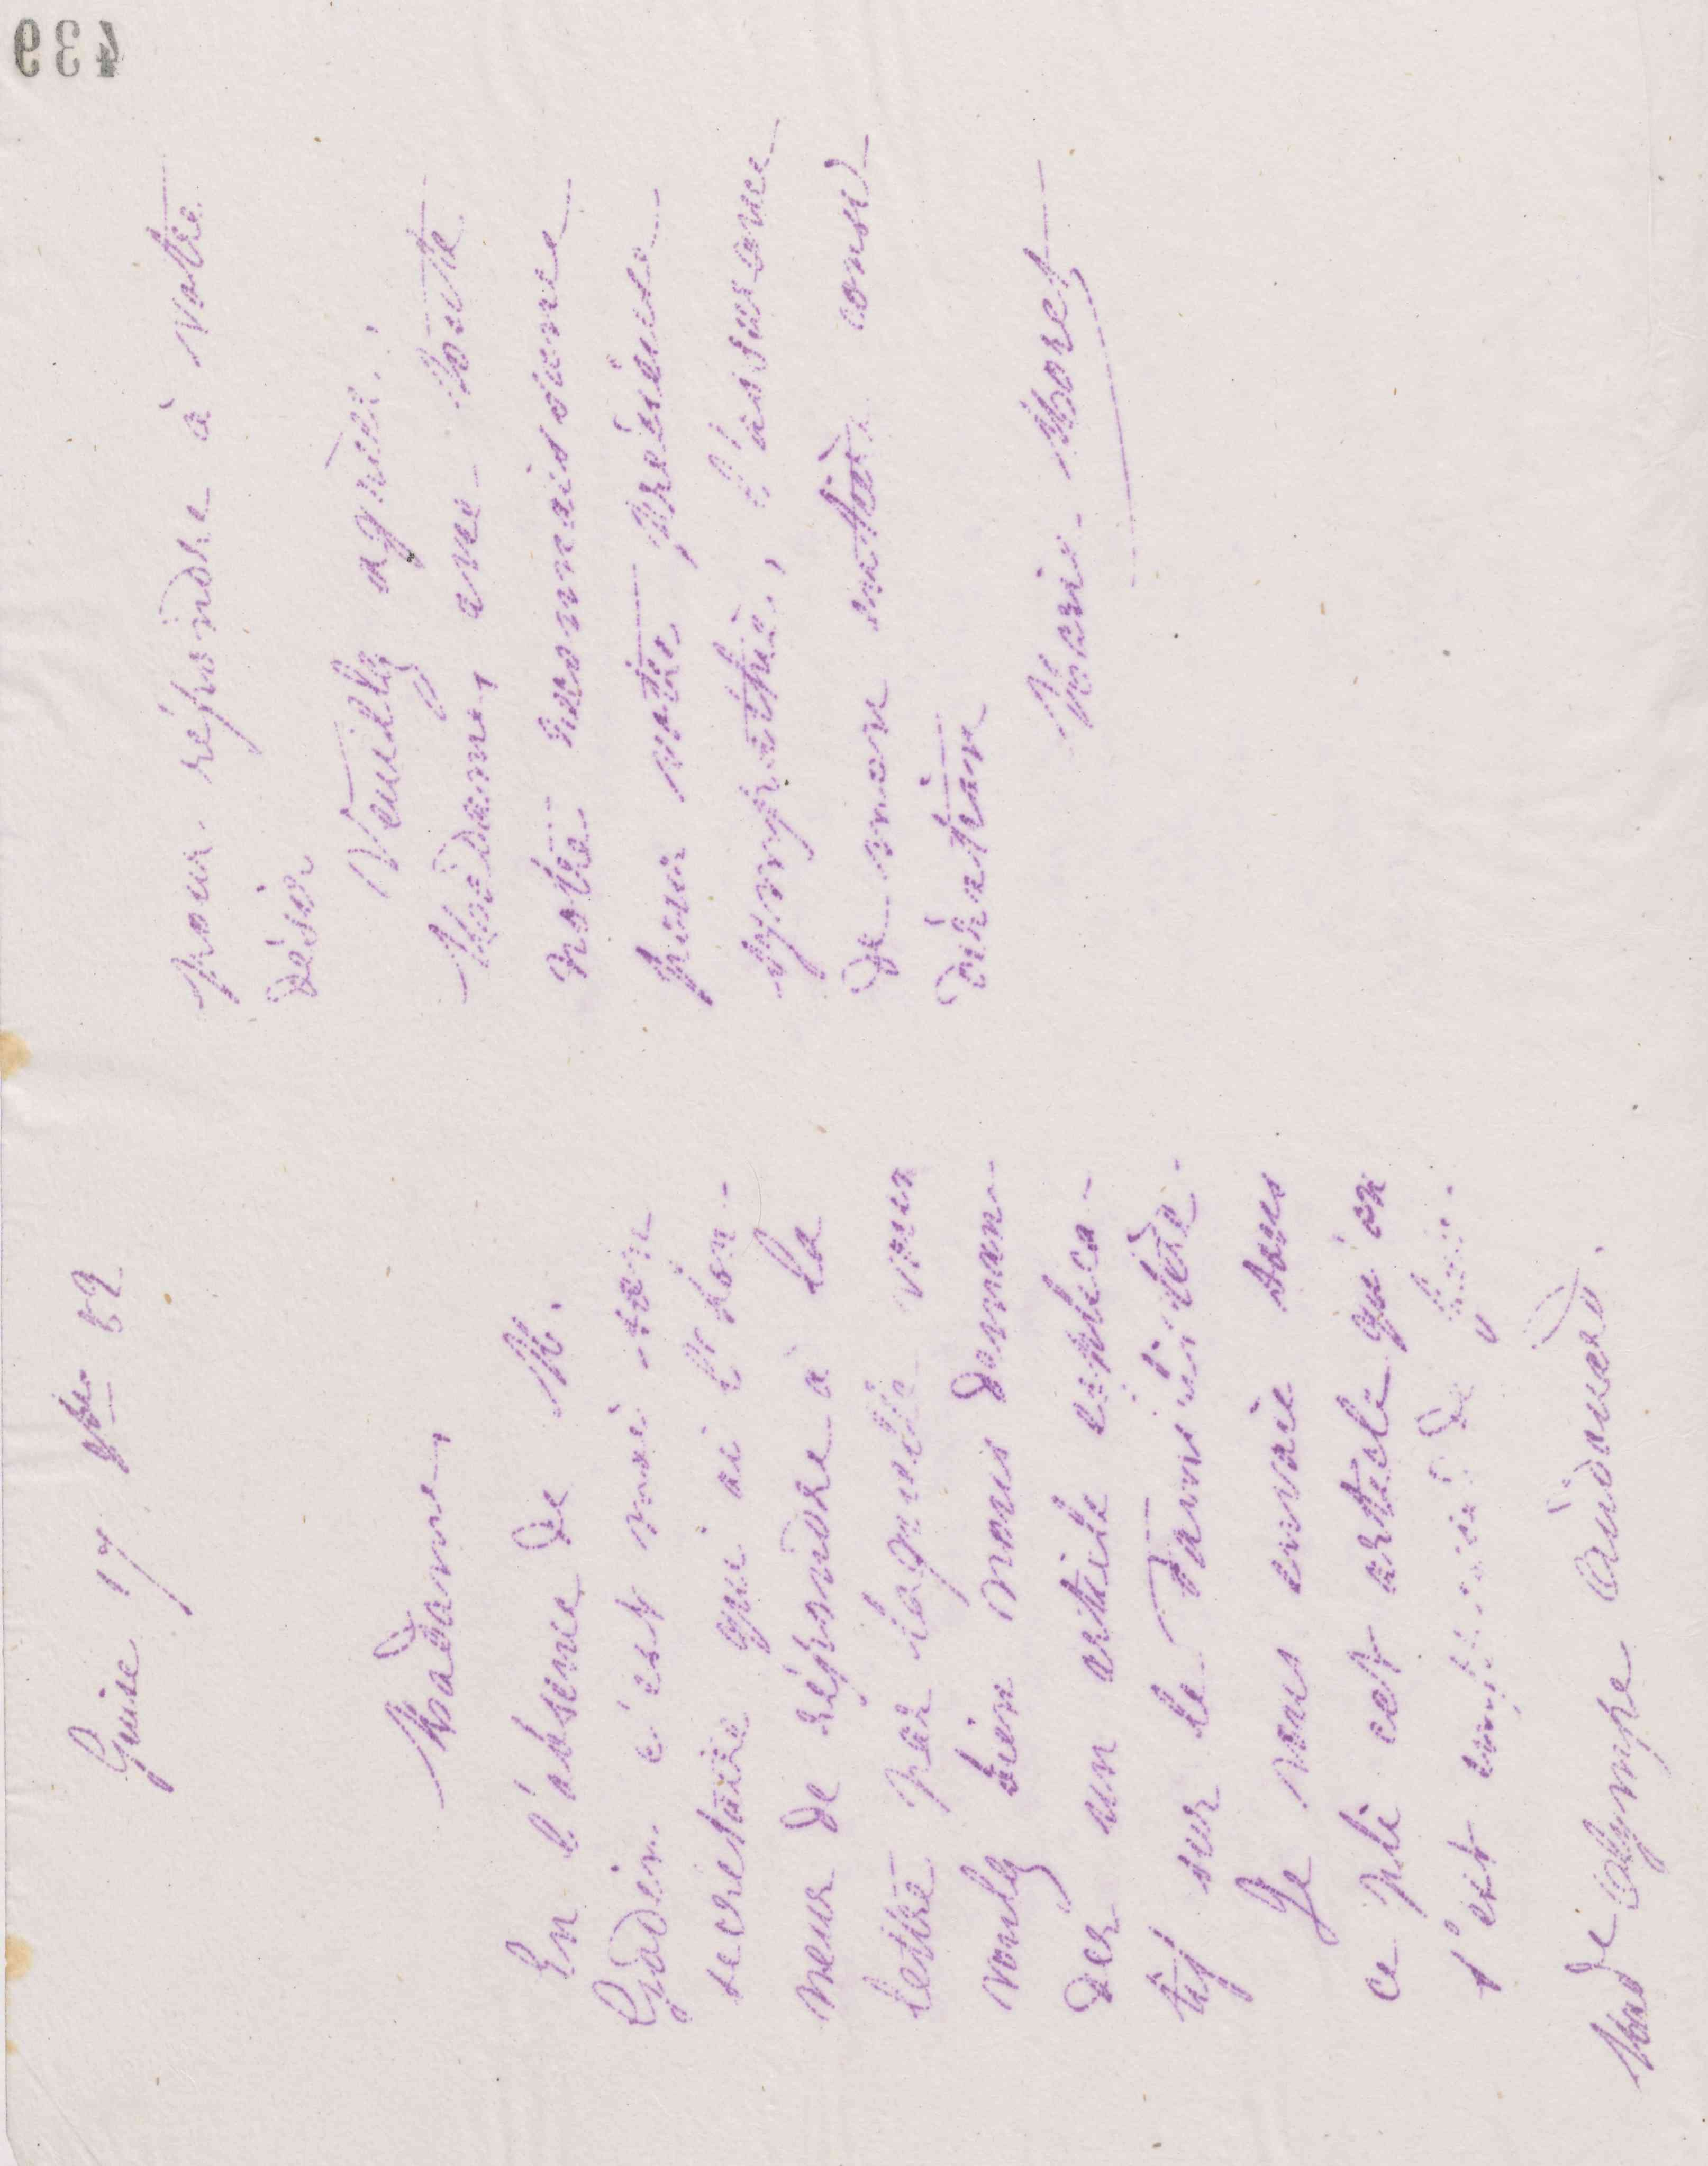 439
Guise 17 9bre 82
Madame,
En l'absence de M.
Godin c'est moi son
secrétaire qui ai l'hon-
neur de répondre à la
lettre par laquelle vous
voulez bien nous deman-
der un article explica-
tif sur le Familistère.
Je vous envoie sous
ce pli cet article qu'on
s'est empressé de faire.
Made Olympe Audouard.
pour répondre à votre
désir
Veuillez agréer,
Madame, avec toute
notre reconnaissance
pour votre précieuse
sympathie, l'assurance
de mon entière consi
dération
Marie Moret